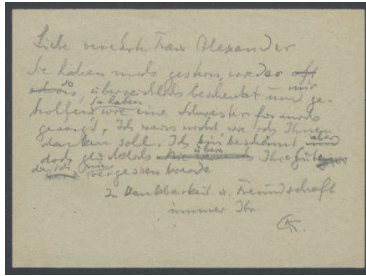 Liebe verehrte Frau Alexander
Sie haben mich gestern wieder oft
so überreichlich beschenkt und mir ge-
holfen Sie haben wie eine Schwester für mich
gesorgt, Ich weiss nicht wie ich Ihnen
danken soll. Ich bin beschämt und aber
doch glücklich über Ihre Güte
vergessen werde
In Dankbarkeit u. Freundschaft
immer Ihr